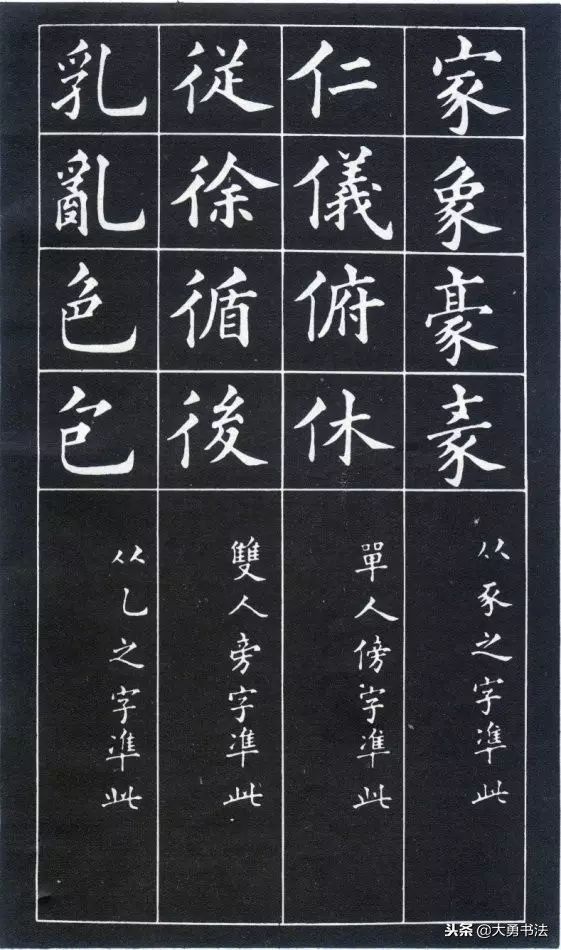 家象豪
从豕之字凖此
仁儀俯休
單人傍字凖此
従徐循後
雙人旁字凖此
乳亂色包
从乙之字凖此
头条@大勇书法